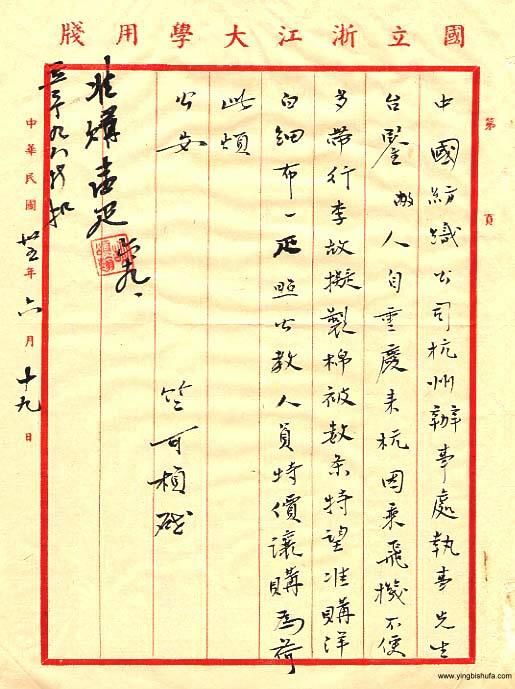 國立浙江大學用牋
第 頁
中國紡織公司杭州辦事處執事先生
台鑒敝人自重慶来杭因乘飛機不便
多帶行李故擬製棉被數条特望准購洋
白細布一疋照公教人員特價讓購為荷
此頌
公安
竺可楨啟
准購壹疋
六、十九、
中華民國卅五年六月十九日
www.yingbishufa.com